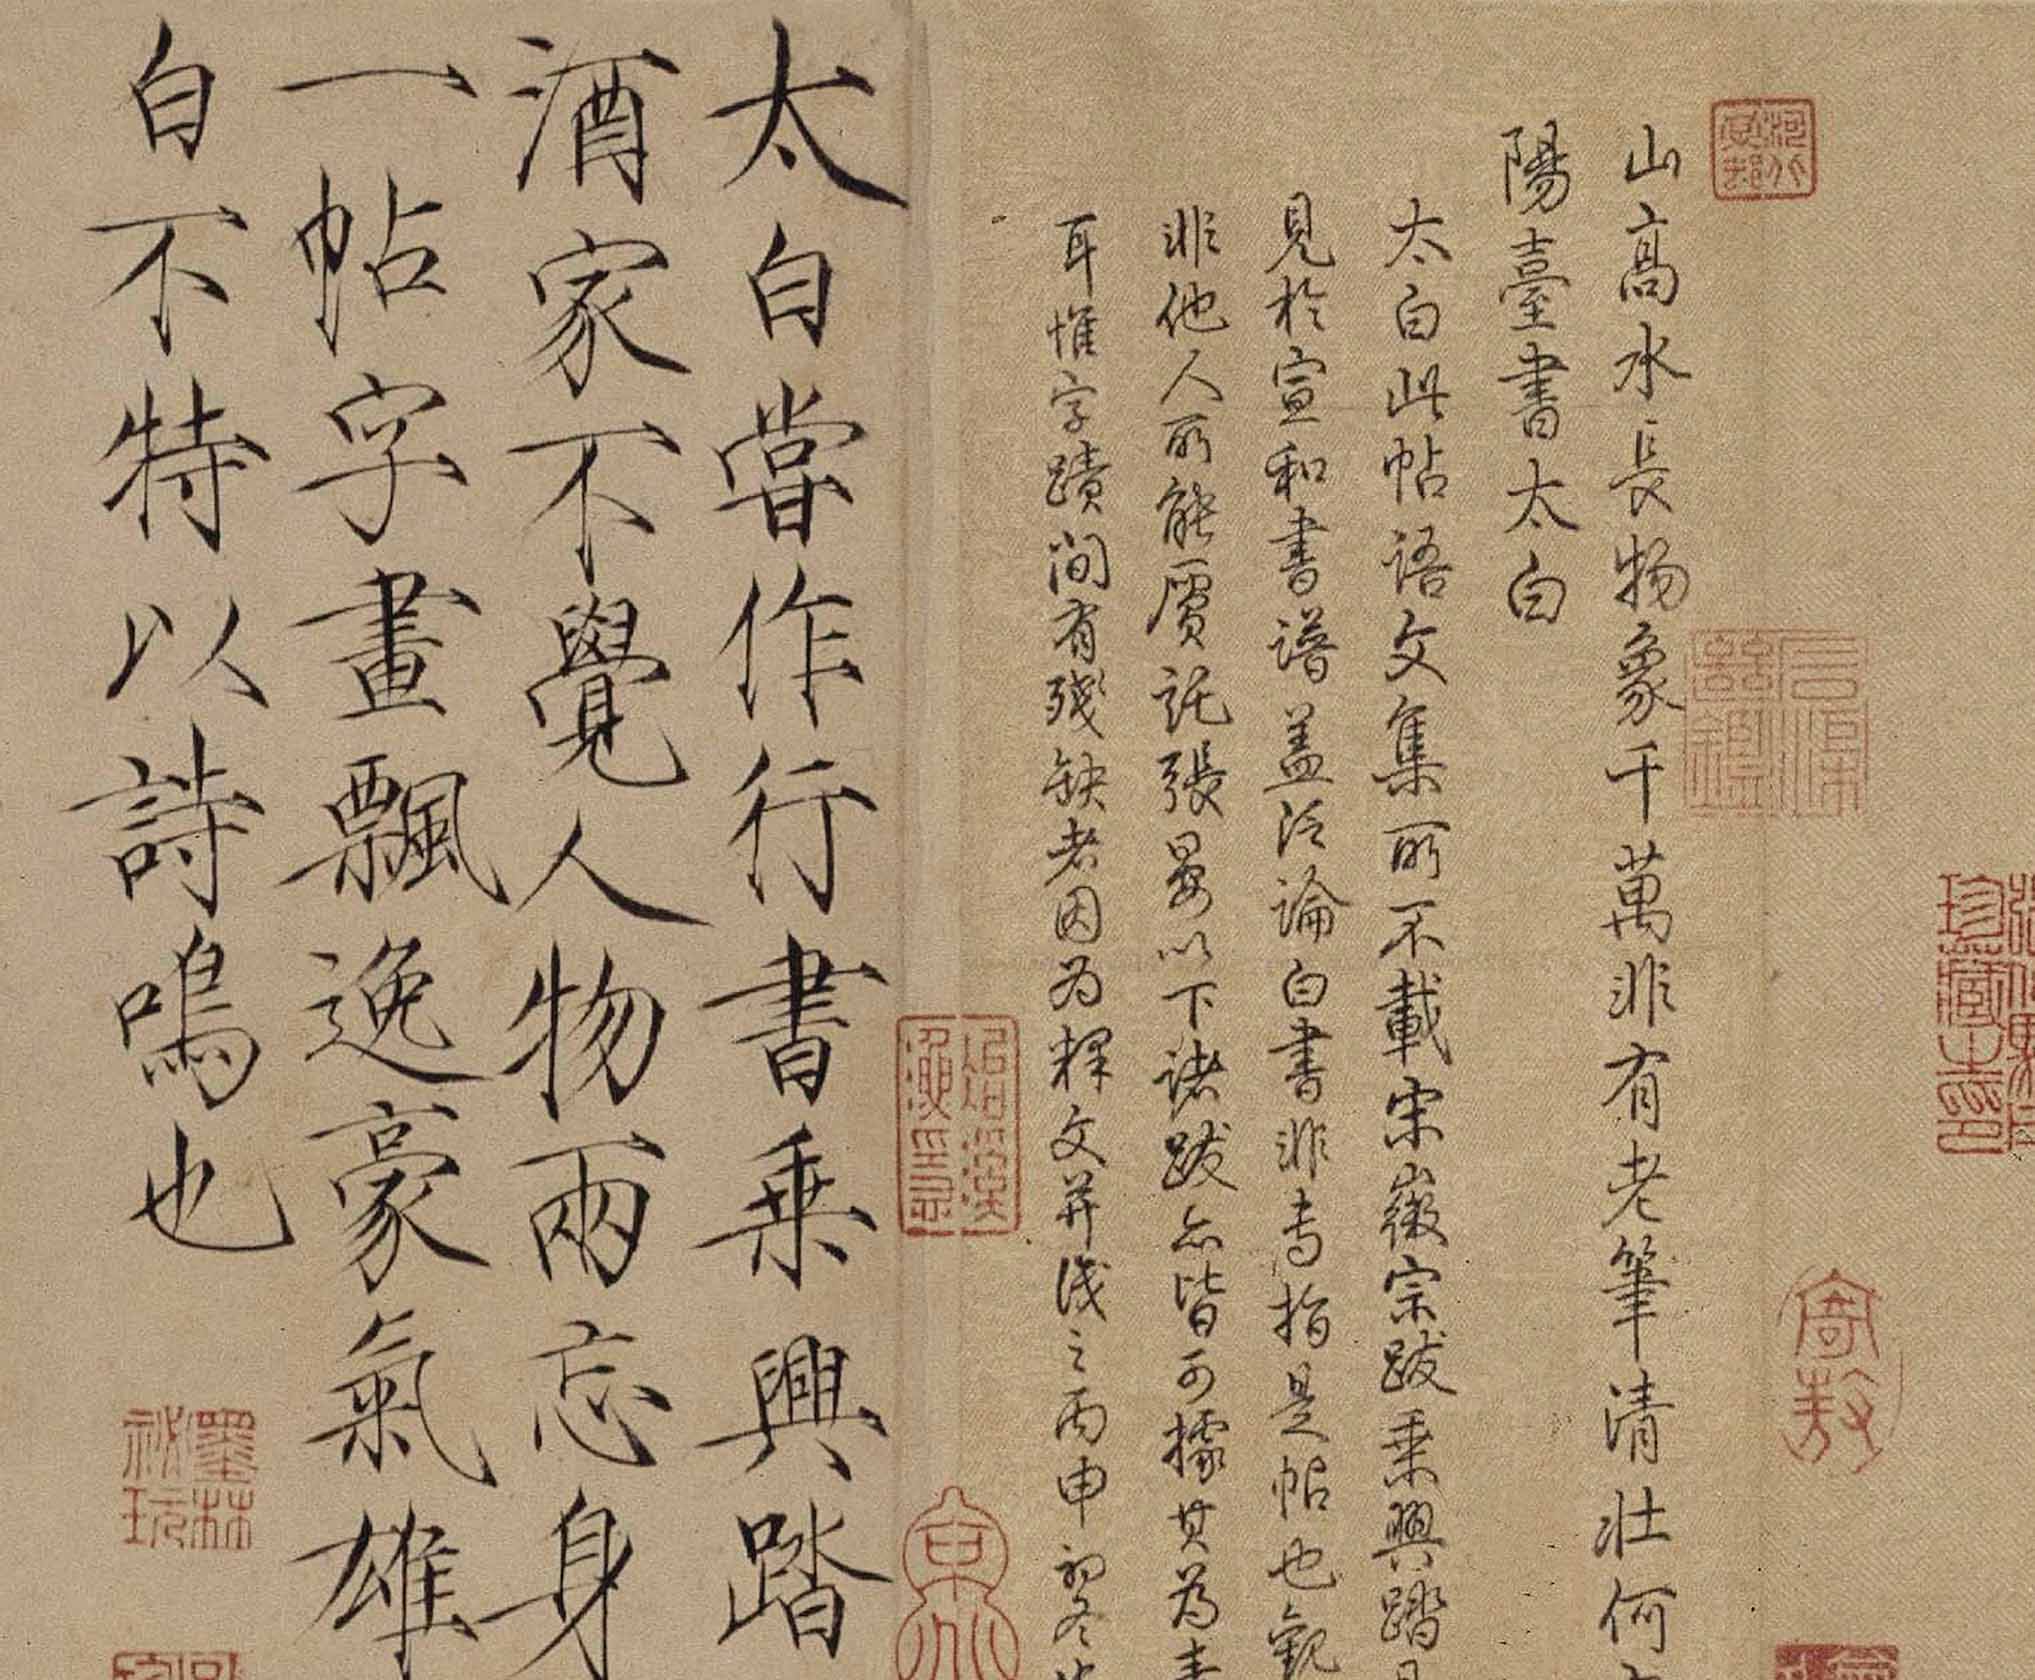 山高水長物象千萬非有老筆清壯何
陽臺書太白
太白此帖語文集所不載宋徽宗跋乗興踏
見於宣和書譜盖泛論白書非專指是帖也觀
非他人所能贗託張晏以下諸跋亦皆可據其為
耳惟字蹟間有殘缺者因为釋文并識之丙申初冬
太白嘗作行書乗興踏
酒家不覺人物兩忘身
一帖字畫飄逸豪氣雄
白不特以詩鳴也
墨林祕玩